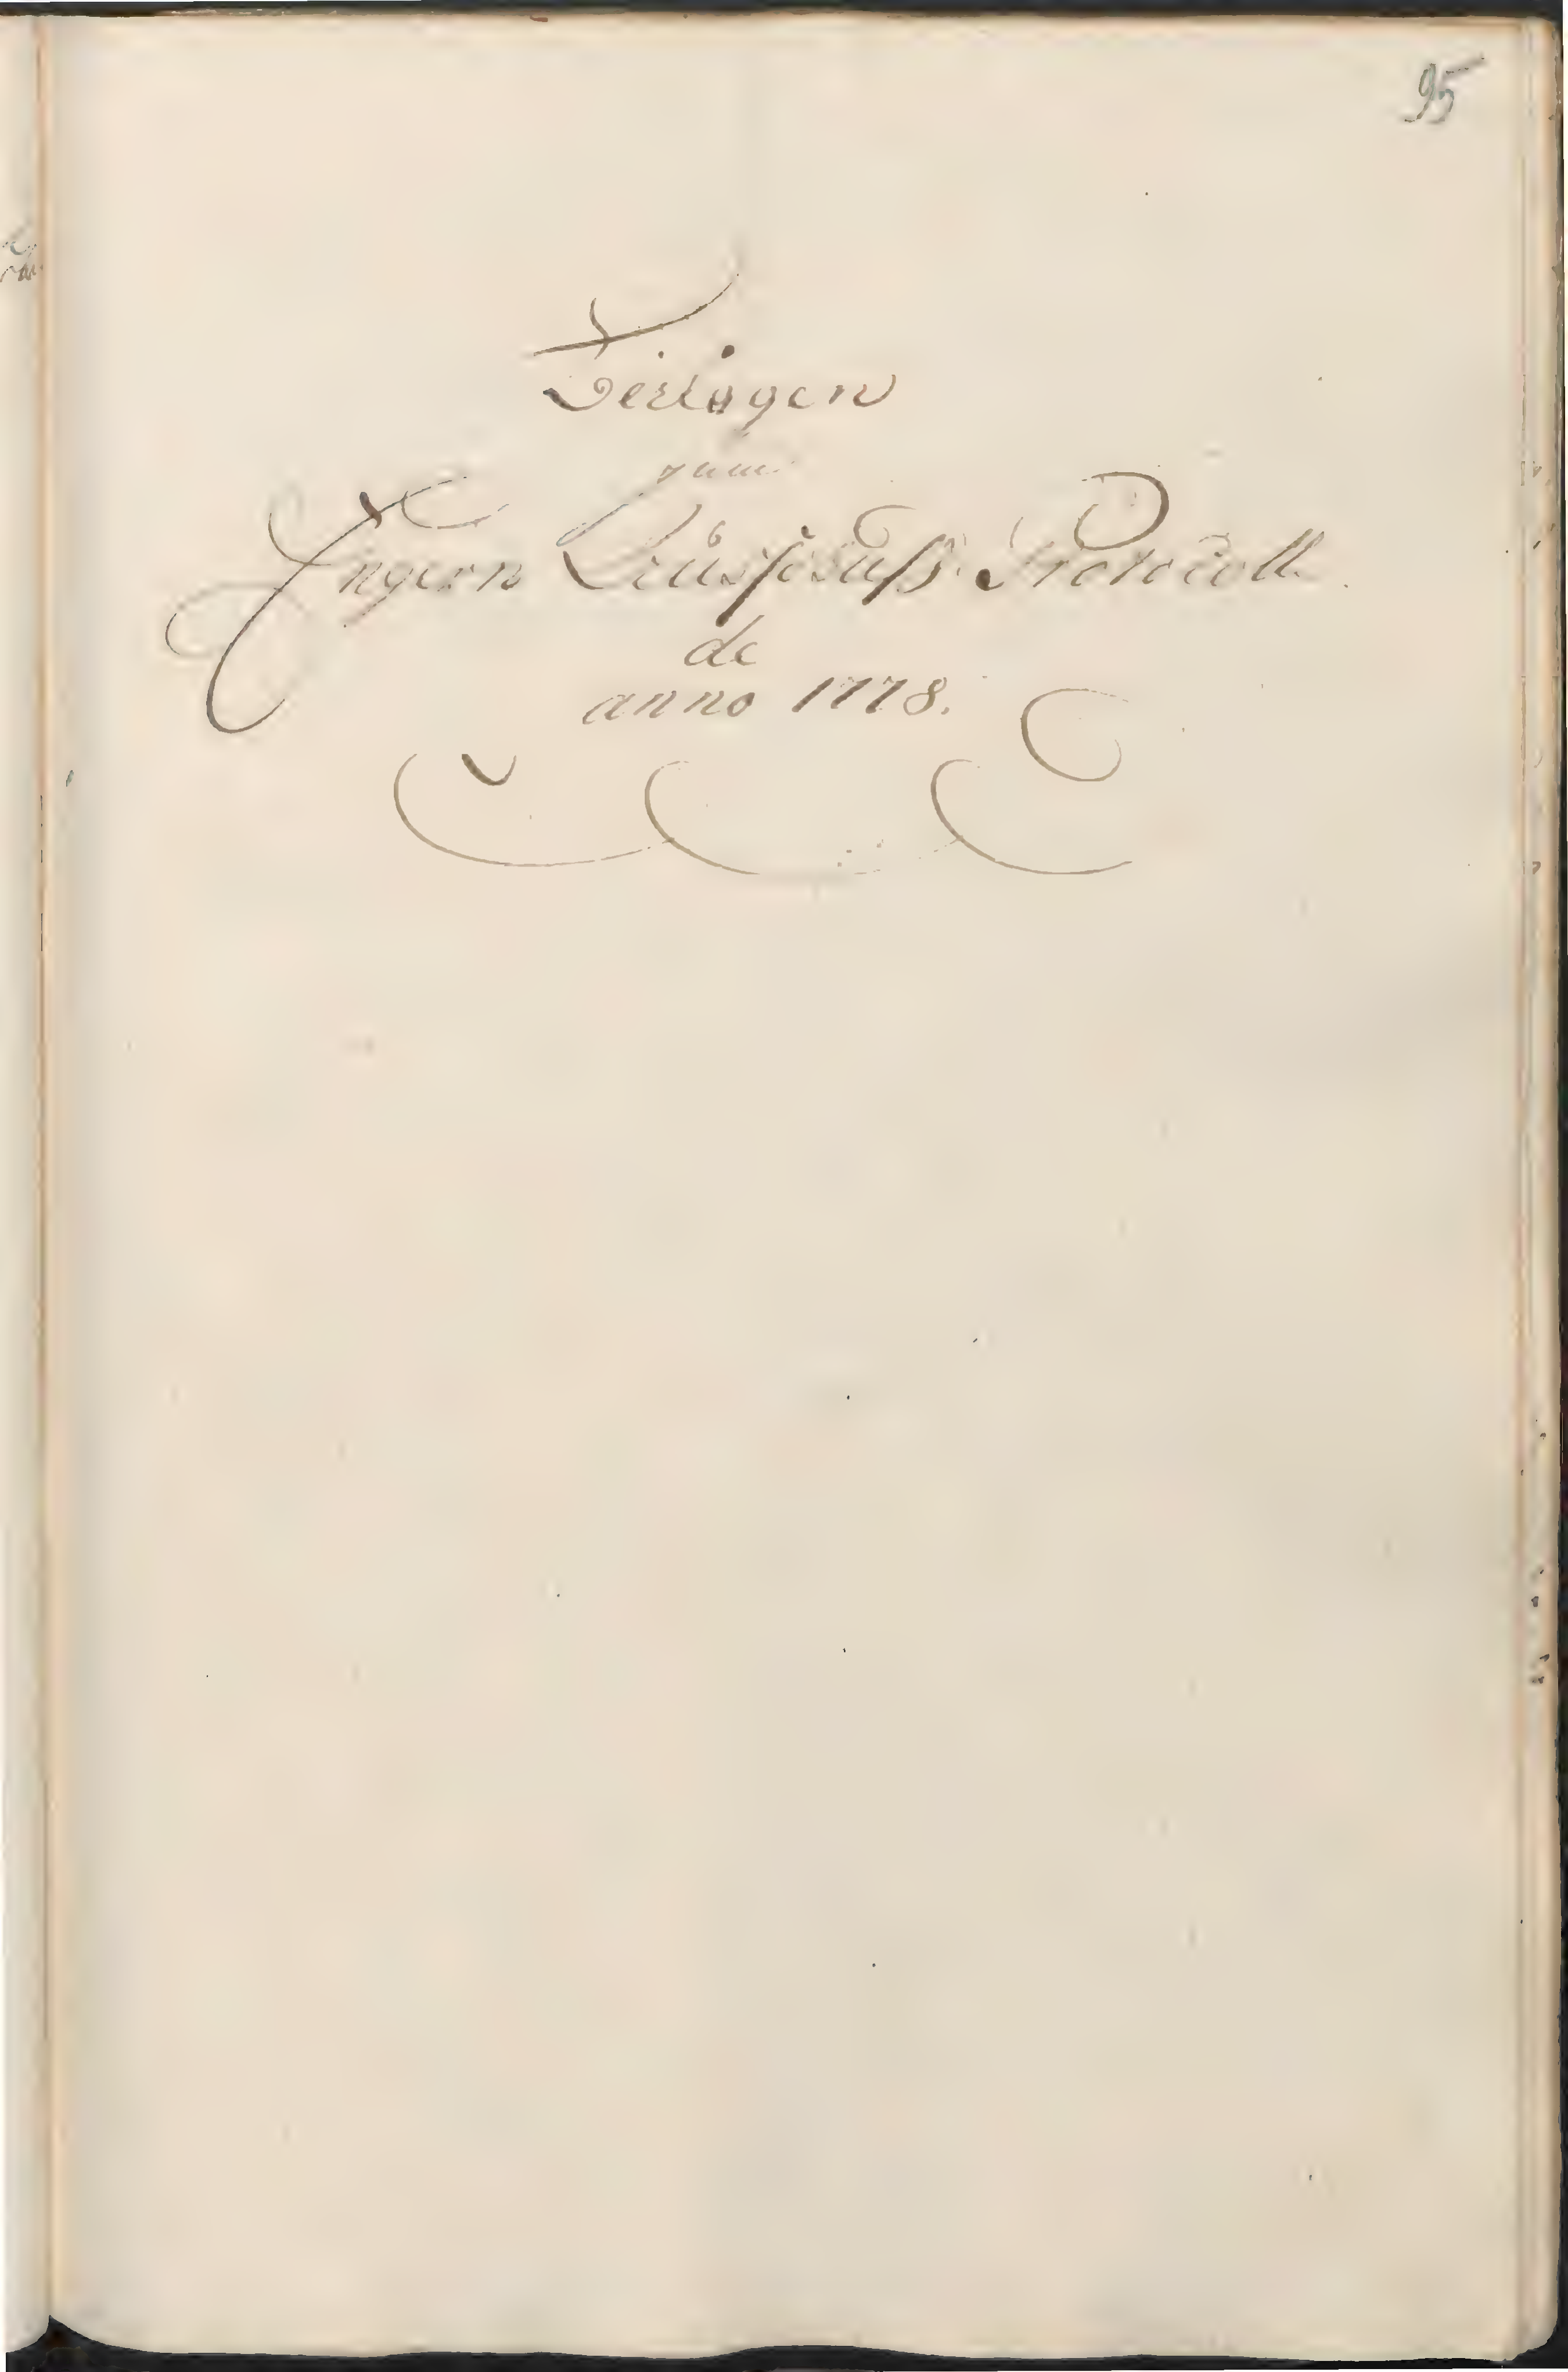 95
Beilagen
zum
Engern Ausschuß-Protocoll
de
anno 1778.